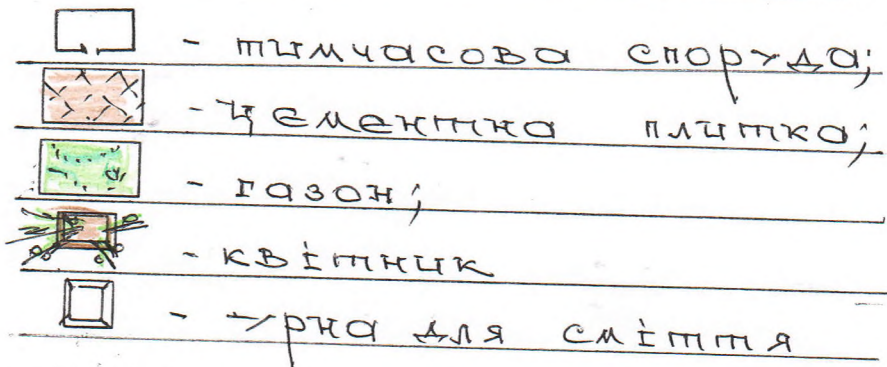 - тимчасова споруда;
- цементна плитка;
- газон;
- квітник
- урна для сміття